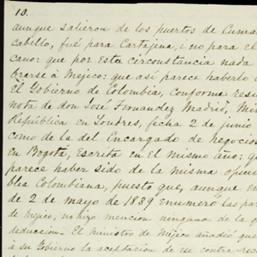 10.
aunque salieron de los puertos de Cuma
cabello, fué para Cartajena, i no para el
cano: que por esta circunstancia nada
brarse a Méjico: que así parece haberlo
El Gobierno de Colombia, conforme resu
nota de don José Fernandez Madrid, Mi
República en Londres, fecha 2 de junio
como de la del Encargado de negocios
en Bogotá, escrita en el mismo año: q
parece haber sido de la misma opin
blea Colombiana, puesto que, aunque en
de 2 de mayo de 1839 enumeró las par
de Méjico, no hizo mencion ninguna de la
deduccion. El ministro de Méjico añadió que
a su Gobierno la aceptacion de un contra-